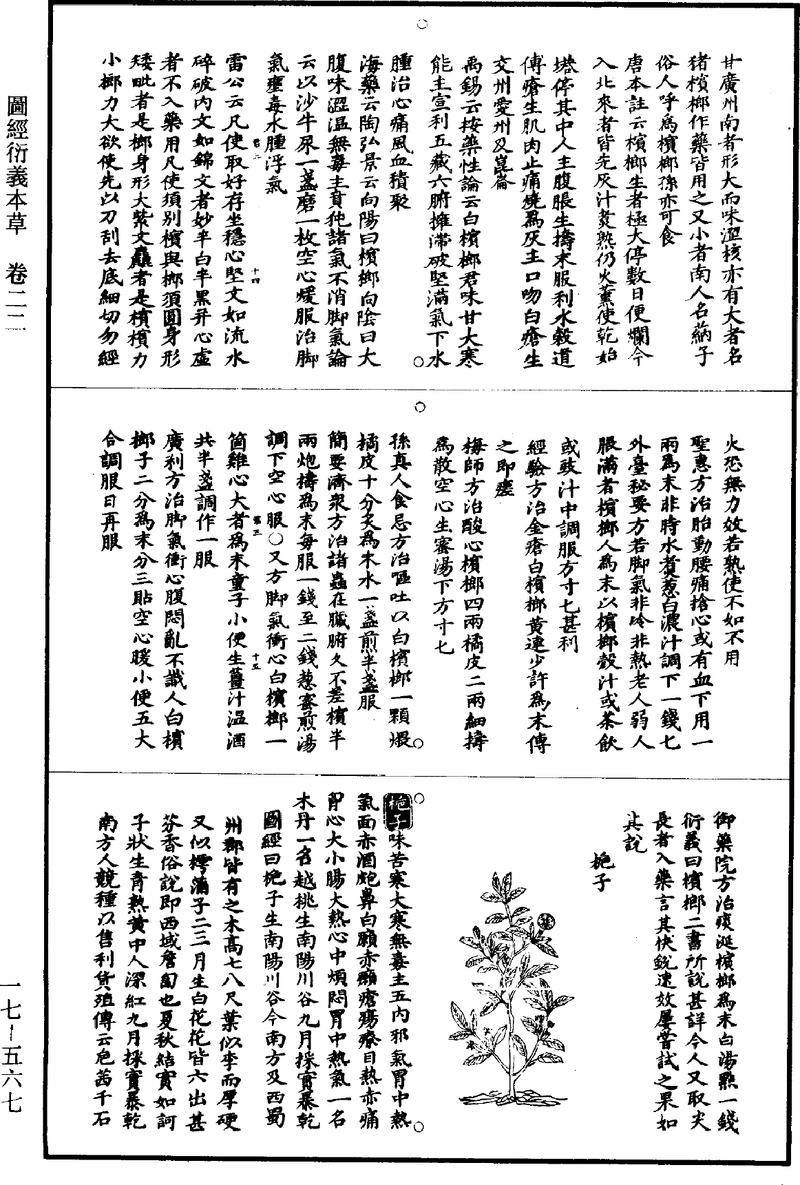 圖經衍義本草　卷二二
甘廣州南者形大而味澀核亦有大者名
猪檳榔作藥皆用之又小者南人名蒳子
俗人呼爲檳榔孫亦可食
唐本註云檳榔生者極大停數日便爛今
入北來者皆先灰汁煑熟仍火薰使乾始
堪停其中人主腹脹生擣末服利水穀道
傅瘡生肌肉止痛燒爲灰主口吻白瘡生
交州愛州及崑崙
禹錫云按藥性論云白檳榔君味甘大寒
能主宣利五藏六腑擁滯破堅滿氣下水
腫治心痛風血積聚
海藥云陶弘景云向陽曰檳榔向陰曰大
腹味澀温無毒主賁㹠諸氣不消脚氣論
云以沙牛尿一盞磨一枚空心煖服治脚
氣壅毒水腫浮氣
雷公云凡使取好存坐穩心堅文如流水
碎破内文如錦文者妙半白半黑并心虚
者不入藥用凡使須别檳與榔須圓身形
矮毗者是榔身形大紫文麤者是檳檳力
小榔力大欲使先以刀刮去底細切勿經
火恐無力效若熟使不如不用
聖惠方治胎動腰痛搶心或有血下用一
兩爲末非時水煑葱白濃汁調下一錢七
外臺秘要方若脚氣非冷非熱老人弱人
脹滿者檳榔人爲末以檳榔殼汁或茶飲
或豉汁中調服方寸七甚利
經驗方治金瘡白檳榔黄連少許爲末傅
之即瘥
梅師方治醋心檳榔四兩橘皮二兩細擣
爲散空心生蜜湯下方寸七
孫真人食忌方治嘔吐以白檳榔一顆煨
橘皮十分炙爲末水一盞煎半盞服
簡要濟衆方治諸蟲在臟腑久不差檳半
兩炮擣爲末每服一錢至二錢葱蜜煎湯
調下空心服○又方脚氣衝心白檳榔一
箇雞心大者爲末童子小便生薑汁温酒
共半盞調作一服
廣利方治脚氣衝心腹悶亂不識人白檳
榔子二分爲末分三貼空心暖小便五大
合調服日再服
御藥院方治痰涎檳榔爲末白湯點一錢
衍義曰檳榔二書所說甚詳今人又取尖
長者入藥言其快銳速效屢嘗試之果如
其說
梔子
梔子味苦寒大寒無毒主五内邪氣胃中熱
氣面赤酒皰皶鼻白癩赤癩瘡瘍療目熱赤痛
胷心大小腸大熱心中煩悶胃中熱氣一名
木丹一名越桃生南陽川谷九月採實暴乾
圖經曰梔子生南陽川谷今南方及西蜀
州郡皆有之木高七八尺葉似李而厚硬
又似樗蒲子二三月生白花花皆六出甚
芬香俗說即西域詹匐也夏秋結實如訶
子狀生青熟黄中人深紅九月採實暴乾
南方人競種以售利貨殖傳云巵茜千石
一七—五六七